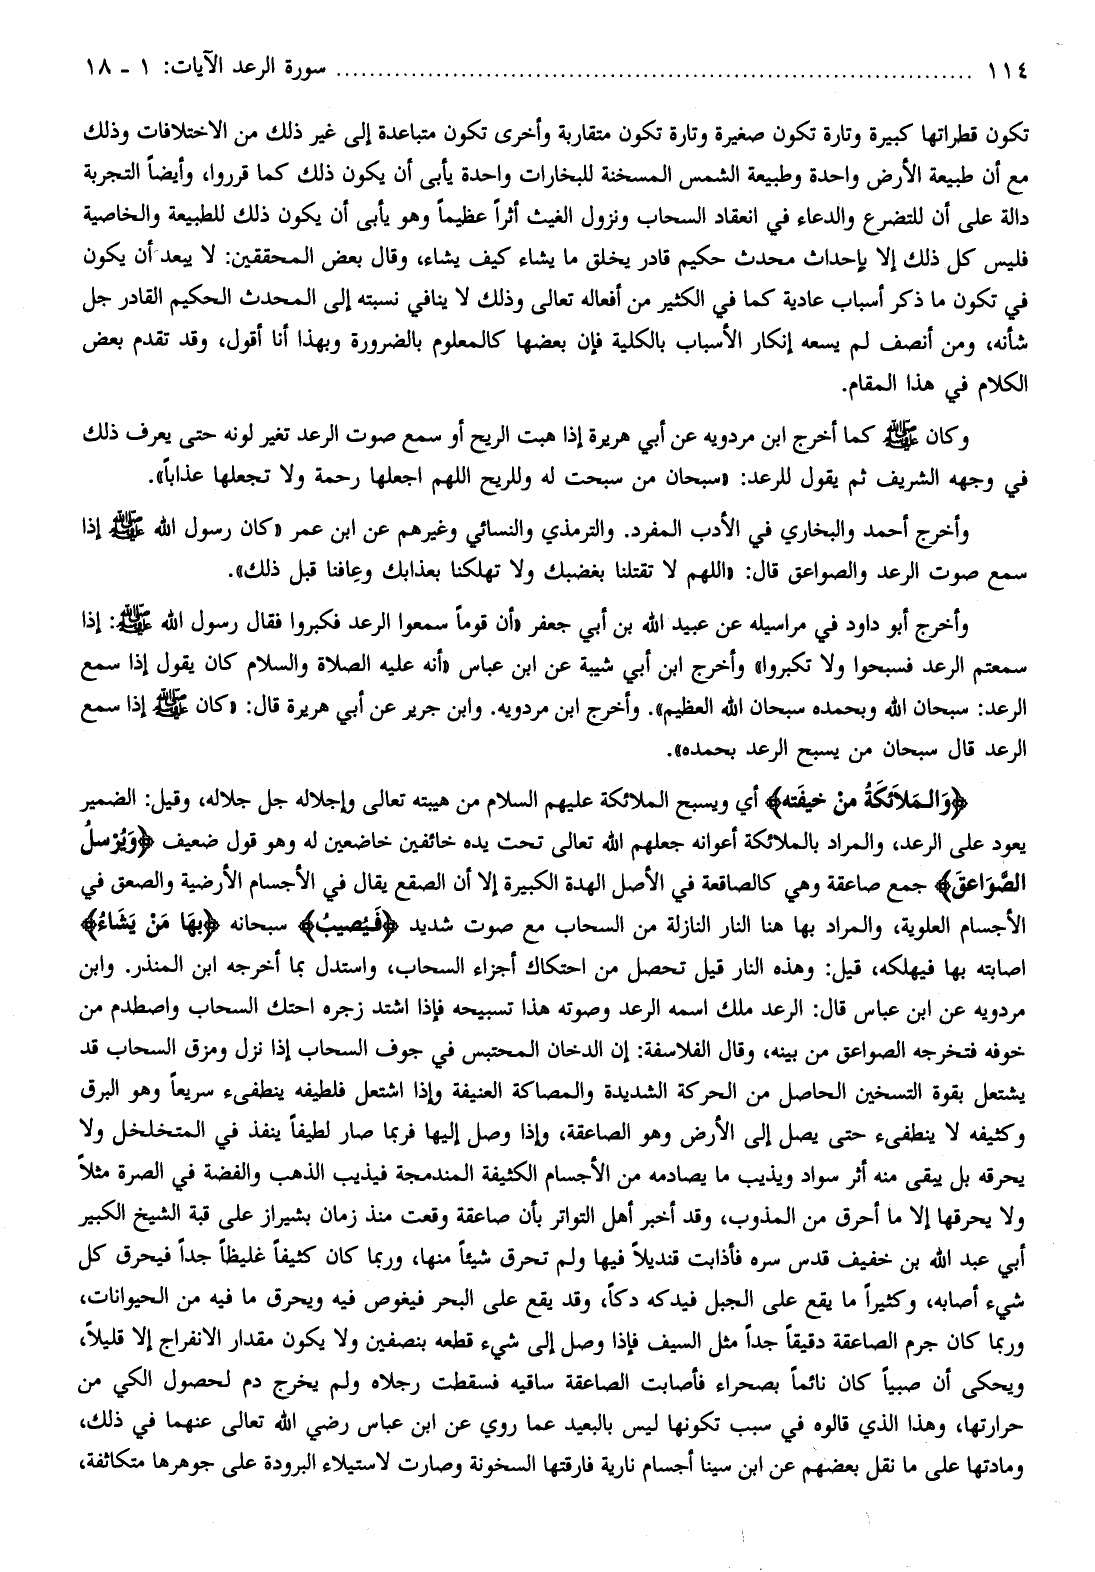 ١١٤ ........................................................................ سورة الرعد الآيات: ١ - ١٨
تكون قطراتها كبيرة وتارة تكون صغيرة وتارة تكون متقاربة وأخرى تكون متباعدة إلى غير ذلك من الاختلافات وذلك
مع أن طبيعة الأرض واحدة وطبيعة الشمس المسخنة للبخارات واحدة يأبى أن يكون ذلك كما قرروا، وأيضاً التجربة
دالة على أن للتضرع والدعاء في انعقاد السحاب ونزول الغيث أثراً عظيماً وهو يأبى أن يكون ذلك للطبيعة والخاصية
فليس كل ذلك إلا بإحداث محدث حكيم قادر يخلق ما يشاء كيف يشاء، وقال بعض المحققين: لا يبعد أن يكون
في تكون ما ذكر أسباب عادية كما في الكثير من أفعاله تعالى وذلك لا ينافي نسبته إلى المحدث الحكيم القادر جل
شأنه، ومن أنصف لم يسعه إنكار الأسباب بالكلية فإن بعضها كالمعلوم بالضرورة وبهذا أنا أقول، وقد تقدم بعض
الكلام في هذا المقام.
وكان ﷺ كما أخرج ابن مردويه عن أبي هريرة إذا هبت الريح أو سمع صوت الرعد تغير لونه حتى يعرف ذلك
في وجهه الشريف ثم يقول للرعد: «سبحان من سبحت له وللريح اللهم اجعلها رحمة ولا تجعلها عذاباً».
وأخرج أحمد والبخاري في الأدب المفرد. والترمذي والنسائي وغيرهم عن ابن عمر «كان رسول الله ﷺ إذا
سمع صوت الرعد والصواعق قال: «اللهم لا تقتلنا بغضبك ولا تهلكنا بعذابك وعافنا قبل ذلك».
وأخرج أبو داود في مراسيله عن عبيد الله بن أبي جعفر «أن قوماً سمعوا الرعد فكبروا فقال رسول الله ﷺ: إذا
سمعتم الرعد فسبحوا ولا تكبروا» وأخرج ابن أبي شيبة عن ابن عباس «أنه عليه الصلاة والسلام كان يقول إذا سمع
الرعد: سبحان الله وبحمده سبحان الله العظيم». وأخرج ابن مردويه. وابن جرير عن أبي هريرة قال: «كان ﷺ إذا سمع
الرعد قال سبحان من يسبح الرعد بحمده».
﴿وَالـمَلاَئكَةُ منْ خيفَته﴾ أي ويسبح الملائكة عليهم السلام من هيبته تعالى وإجلاله جل جلاله، وقيل: الضمير
يعود على الرعد، والمراد بالملائكة أعوانه جعلهم الله تعالى تحت يده خائفين خاضعين له وهو قول ضعيف ﴿وَيُرْسلُ
الصَّوَاعقَ﴾ جمع صاعقة وهي كالصاقعة في الأصل الهدة الكبيرة إلا أن الصقع يقال في الأجسام الأرضية والصعق في
الأجسام العلوية، والمراد بها هنا النار النازلة من السحاب مع صوت شديد ﴿فَـيُصيبُ﴾ سبحانه ﴿بهَا مَنْ يَشَاءُ﴾
اصابته بها فيهلكه، قيل: وهذه النار قيل تحصل من احتكاك أجزاء السحاب، واستدل بما أخرجه ابن المنذر. وابن
مردويه عن ابن عباس قال: الرعد ملك اسمه الرعد وصوته هذا تسبيحه فإذا اشتد زجره احتك السحاب واصطدم من
خوفه فتخرجه الصواعق من بينه، وقال الفلاسفة: إن الدخان المحتبس في جوف السحاب إذا نزل ومزق السحاب قد
يشتعل بقوة التسخين الحاصل من الحركة الشديدة والمصاكة العنيفة وإذا اشتعل فلطيفه ينطفىء سريعاً وهو البرق
وكثيفه لا ينطفىء حتى يصل إلى الأرض وهو الصاعقة، وإذا وصل إليها فربما صار لطيفاً ينفذ في المتخلخل ولا
يحرقه بل يبقى منه أثر سواد ويذيب ما يصادمه من الأجسام الكثيفة المندمجة فيذيب الذهب والفضة في الصرة مثلاً
ولا يحرقها إلا ما أحرق من المذوب، وقد أخبر أهل التواتر بأن صاعقة وقعت منذ زمان بشيراز على قبة الشيخ الكبير
أبي عبد الله بن خفيف قدس سره فأذابت قنديلاً فيها ولم تحرق شيئاً منها، وربما كان كثيفاً غليظاً جداً فيحرق كل
شيء أصابه، وكثيراً ما يقع على الجبل فيدكه دكاً، وقد يقع على البحر فيغوص فيه ويحرق ما فيه من الحيوانات،
وربما كان جرم الصاعقة دقيقاً جداً مثل السيف فإذا وصل إلى شيء قطعه بنصفين ولا يكون مقدار الانفراج إلا قليلاً،
ويحكى أن صبياً كان نائماً بصحراء فأصابت الصاعقة ساقيه فسقطت رجلاه ولم يخرج دم لحصول الكي من
حرارتها، وهذا الذي قالوه في سبب تكونها ليس بالبعيد عما روي عن ابن عباس رضي الله تعالى عنهما في ذلك،
ومادتها على ما نقل بعضهم عن ابن سينا أجسام نارية فارقتها السخونة وصارت لاستيلاء البرودة على جوهرها متكاثفة،